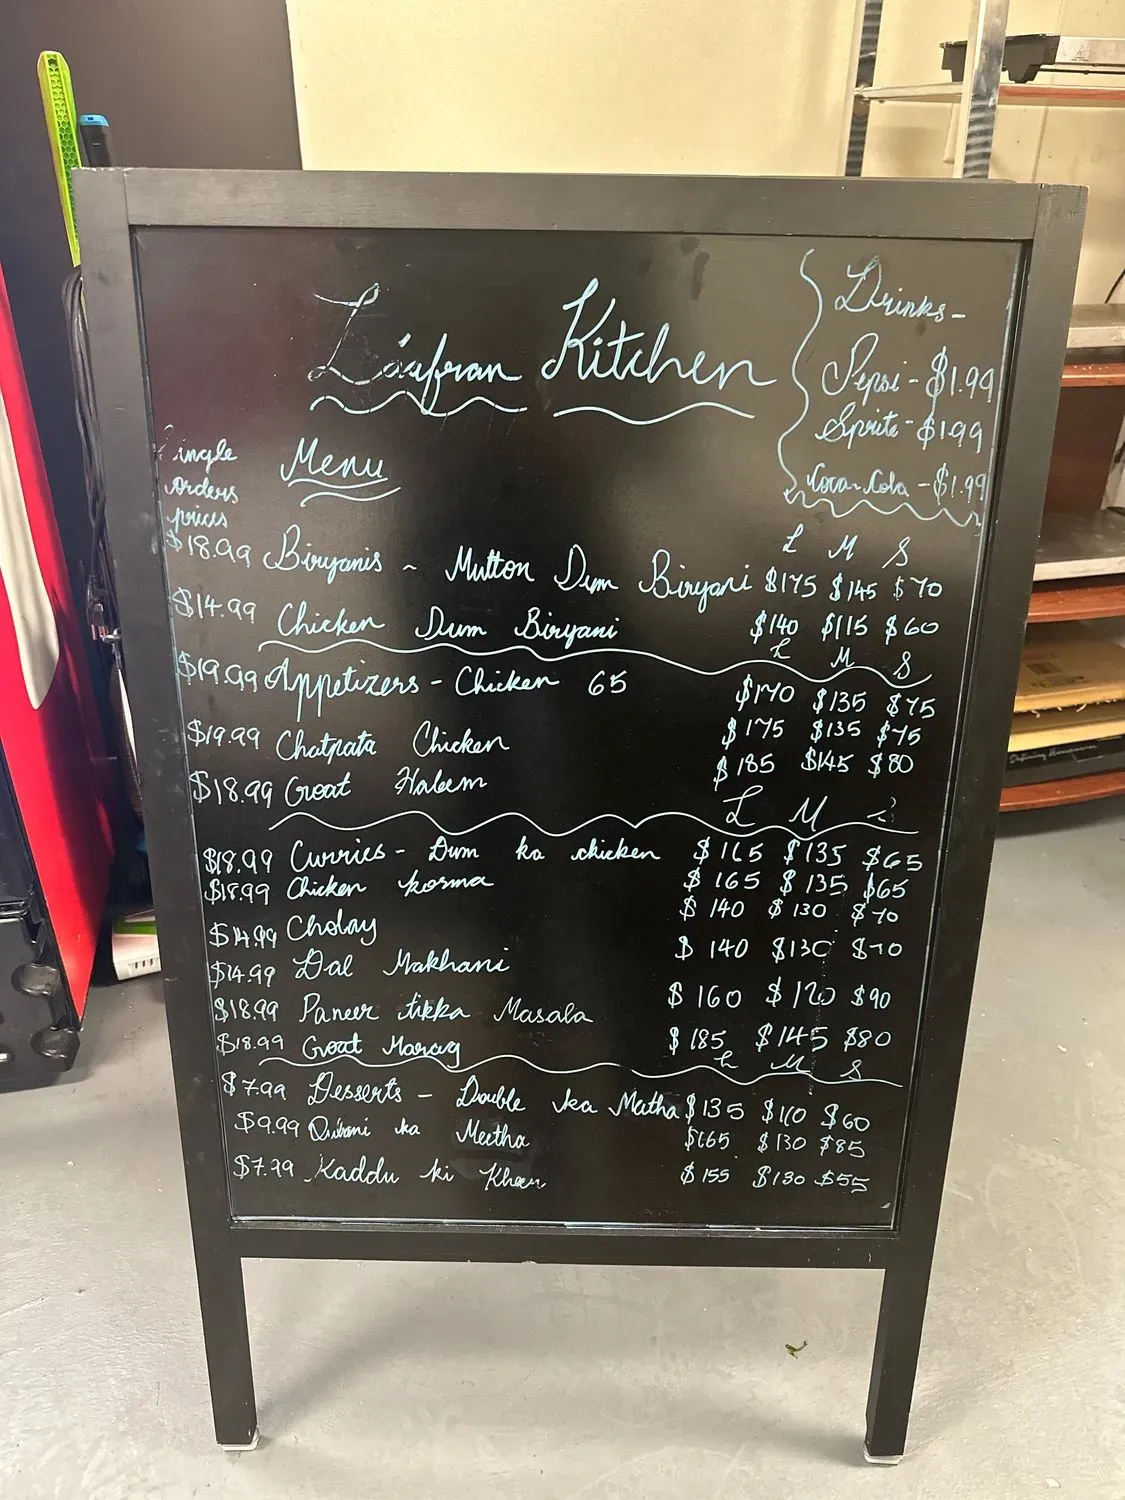 Záufran Kitchen
Drinks-
Pepsi - $1.99
Sprite - $1.99
Coca-Cola - $1.99
Single
orders
prices
Menu
L M S
$18.99 Biryanis ~ Mutton Dum Biryani $175 $145 $70
$14.99 Chicken Dum Biryani $140 $115 $60
L M S
$19.99 Appetizers - Chicken 65 $170 $135 $75
$19.99 Chatpata Chicken $175 $135 $75
$18.99 Goat Haleem $185 $145 $80
L M S
$18.99 Curries - Dum ka chicken $165 $135 $65
$18.99 Chicken korma $165 $135 $65
$14.99 Cholay $140 $130 $70
$14.99 Dal Makhani $140 $130 $70
$18.99 Paneer tikka Masala $160 $120 $90
$18.99 Goat Marag $185 $145 $80
L M S
$7.99 Desserts - Double ka Matha $135 $110 $60
$9.99 Qubani ka Meetha $165 $130 $85
$7.99 Kaddu ki Kheer $155 $130 $55